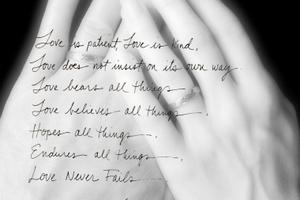 Love is patient, Love is kind.
Love does not insist on its own way
Love bears all things
Love believes all things.
Hopes all things.
Endures all things.
Love Never Fails